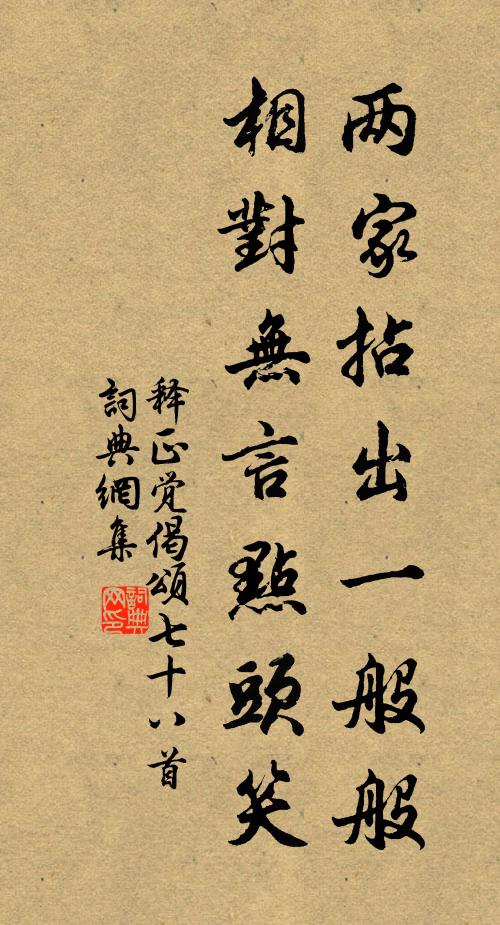 两家拈出一般般
相對無言點頭笑
释正觉偈頌七十八首
詞典網集
詞典网印